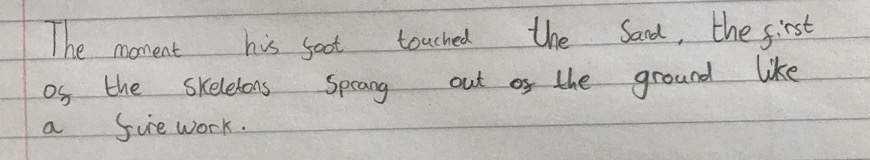 The moment his foot touched the Sand, the first
of the Skeletons Sprang out of the ground like
a firework.